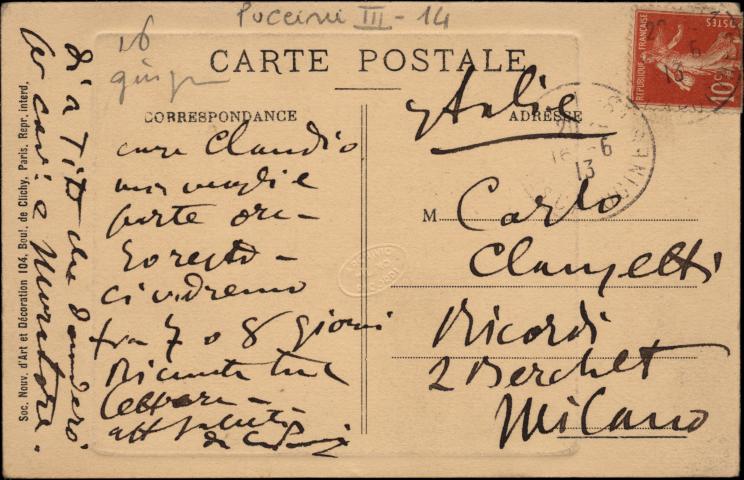 Puccini III - 14
16
giugno
CARTE POSTALE
CORRESPONDANCE
ADRESSE
REPUBLIQUE FRANÇAISE
POSTES
10
16 - 6
13
Italie
caro Claudio
mia moglie
parte ora
Io resto
ci vedremo
fra 7 o 8 giorni
Ricevute tue
lettere
aff saluti
da
M Carlo
Clausetti
Ricordi
2 Berchet
Milano
di a Tito che manderò
Soc. Nouv. d'Art et Décoration 104, Boul. de Clichy, Paris. Repr. interd.